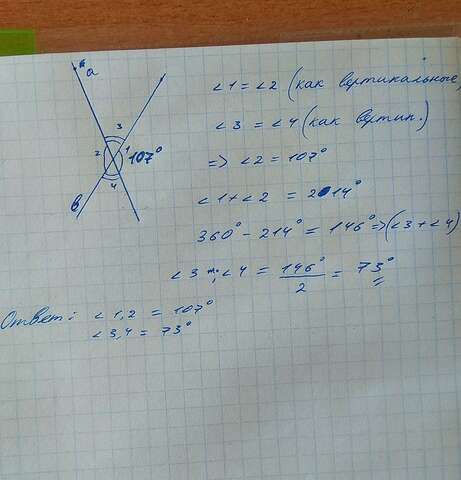 a
3
2 1 107°
4
b
∠1 = ∠2 (как вертикальные)
∠3 = ∠4 (как вертик.)
=> ∠2 = 107°
∠1 + ∠2 = 214°
360° - 214° = 146° => (∠3 + ∠4)
∠3 и ∠4 = 146°/2 = 73°
Ответ: ∠1,2 = 107°
∠3,4 = 73°